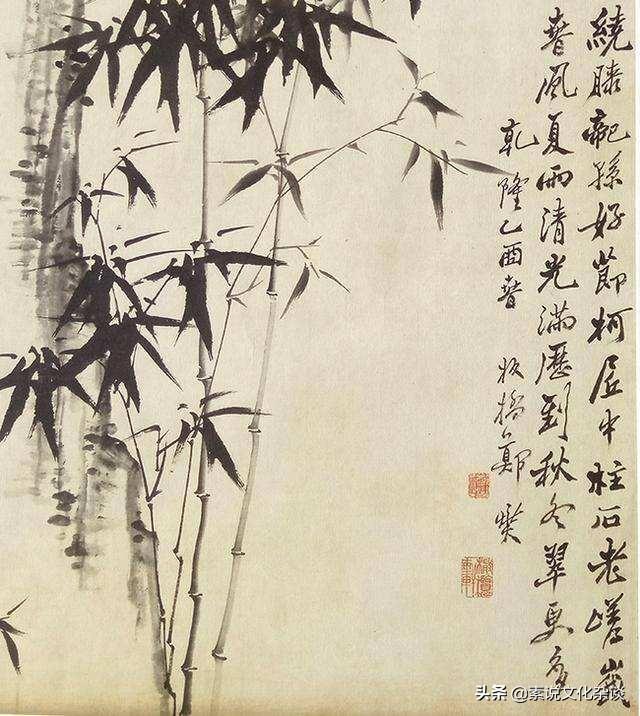 繞膝龍孫好節柯居中柱石老嵯峨
春風夏雨清光滿歷到秋冬翠更多
乾隆乙酉春 板橋鄭燮
头条 @素说文化杂谈